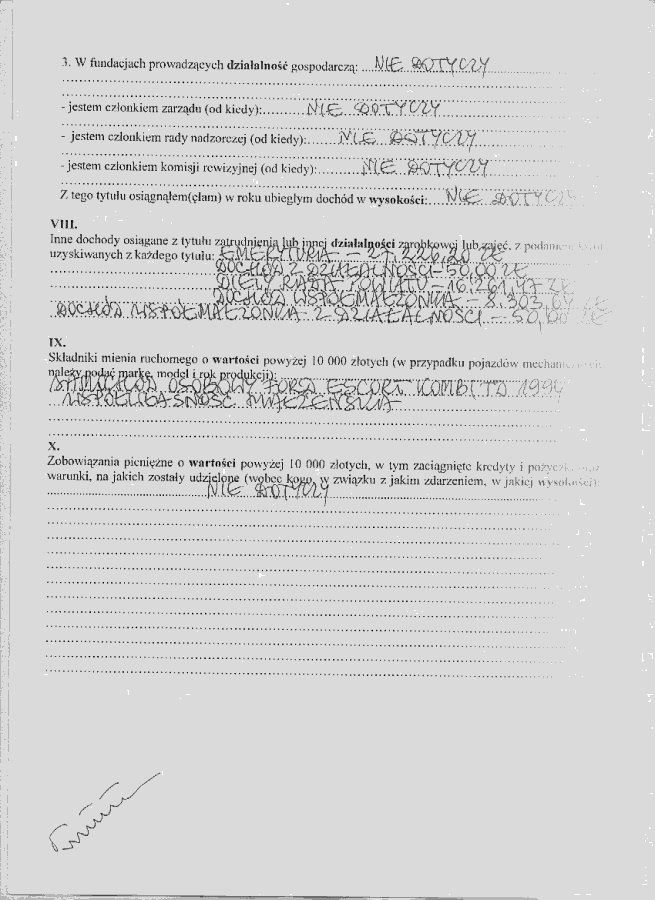 3. W fundacjach prowadzących działalność gospodarczą: ...NIE DOTYCZY
- jestem członkiem zarządu (od kiedy):.......... NIE DOTYCZY
- jestem członkiem rady nadzorczej (od kiedy):....... NIE DOTYCZY
- jestem członkiem komisji rewizyjnej (od kiedy):......... NIE DOTYCZY
Z tego tytułu osiągnąłem(ęłam) w roku ubiegłym dochód w wysokości:.... NIE DOTYCZY
VIII.
Inne dochody osiągane z tytułu zatrudnienia lub innej działalności zarobkowej lub zajęć, z podaniem kwot
uzyskiwanych z każdego tytułu: EMERYTURA - 27.226,20 ZŁ
DOCHÓD Z DZIAŁALNOŚCI - 50,00 ZŁ
DIETY RADA POWIATU - 16.261,47 ZŁ
DOCHÓD WSPÓŁMAŁŻONKA - 8.303,04 ZŁ
DOCHÓD WSPÓŁMAŁŻONKA Z DZIAŁALNOŚCI - 50,00 ZŁ
IX.
Składniki mienia ruchomego o wartości powyżej 10 000 złotych (w przypadku pojazdów mechanicznych
należy podać markę, model i rok produkcji):
SAMOCHÓD OSOBOWY FORD ESCORT KOMBI TD 1994
WSPÓŁWŁASNOŚĆ MAŁŻEŃSKA
X.
Zobowiązania pieniężne o wartości powyżej 10 000 złotych, w tym zaciągnięte kredyty i pożyczki oraz
warunki, na jakich zostały udzielone (wobec kogo, w związku z jakim zdarzeniem, w jakiej wysokości):
NIE DOTYCZY